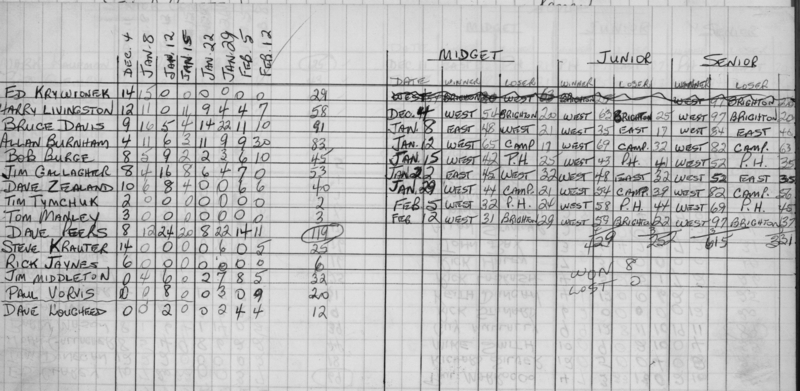 DEC. 4 JAN. 8 JAN. 12 JAN 15 JAN. 22 JAN. 29 FEB. 5 FEB. 12
MIDGET JUNIOR SENIOR
DATE WINNER LOSER WINNER LOSER WINNER LOSER
ED KRYWIONEK 14 15 0 0 0 0 0 0 29
HARRY LIVINGSTON 12 11 0 11 9 4 4 7 58
DEC. 4 WEST 56 BRIGHTON 20 WEST 63 BRIGHTON 25 WEST 97 BRIGHTON 20
BRUCE DAVIS 9 16 5 4 14 22 11 10 91
JAN. 8 EAST 48 WEST 21 WEST 35 EAST 17 WEST 54 EAST
ALLAN BURNHAM 4 11 6 3 11 9 9 30 83
JAN. 12 WEST 65 CAMP 17 WEST 69 CAMP. 32 WEST 82 CAMP. 63
BOB BURGE 8 5 9 2 2 3 6 10 45
JAN 15 WEST 42 P.H 25 WEST 43 P.H. 41 WEST 52 P.H. 35
JIM GALLAGHER 8 4 16 8 6 4 7 0 53
JAN 22 EAST 45 WEST 32 WEST 48 EAST 32 WEST 52 EAST 35
DAVE ZEALAND 10 6 8 4 0 0 6 6 40
JAN. 29 WEST 44 CAMP. 21 WEST 54 CAMP. 39 WEST 82 CAMP. 56
TIM TYMCHUK 2 0 0 0 0 0 0 0 2
FEB. 5 WEST 32 P.H. 24 WEST 58 P.H. 44 WEST 69 P.H. 45
TOM MANLEY 3 0 0 0 0 0 0 0 3
FEB 12 WEST 31 BRIGHTON 29 WEST 59 BRIGHTON 22 WEST 97 BRIGHTON 37
DAVE PEERS 8 12 24 20 8 22 14 11 119
429 252 615 331
STEVE KRAUTER 14 0 0 0 0 6 0 5 25
RICK JAYNES 6 0 0 0 0 0 0 0 6
WON 8
JIM MIDDLETON 0 4 6 0 2 7 8 5 32
LOST 0
PAUL VORVIS 0 0 8 0 0 3 0 9 20
DAVE LOUGHEED 0 0 2 0 0 2 4 4 12